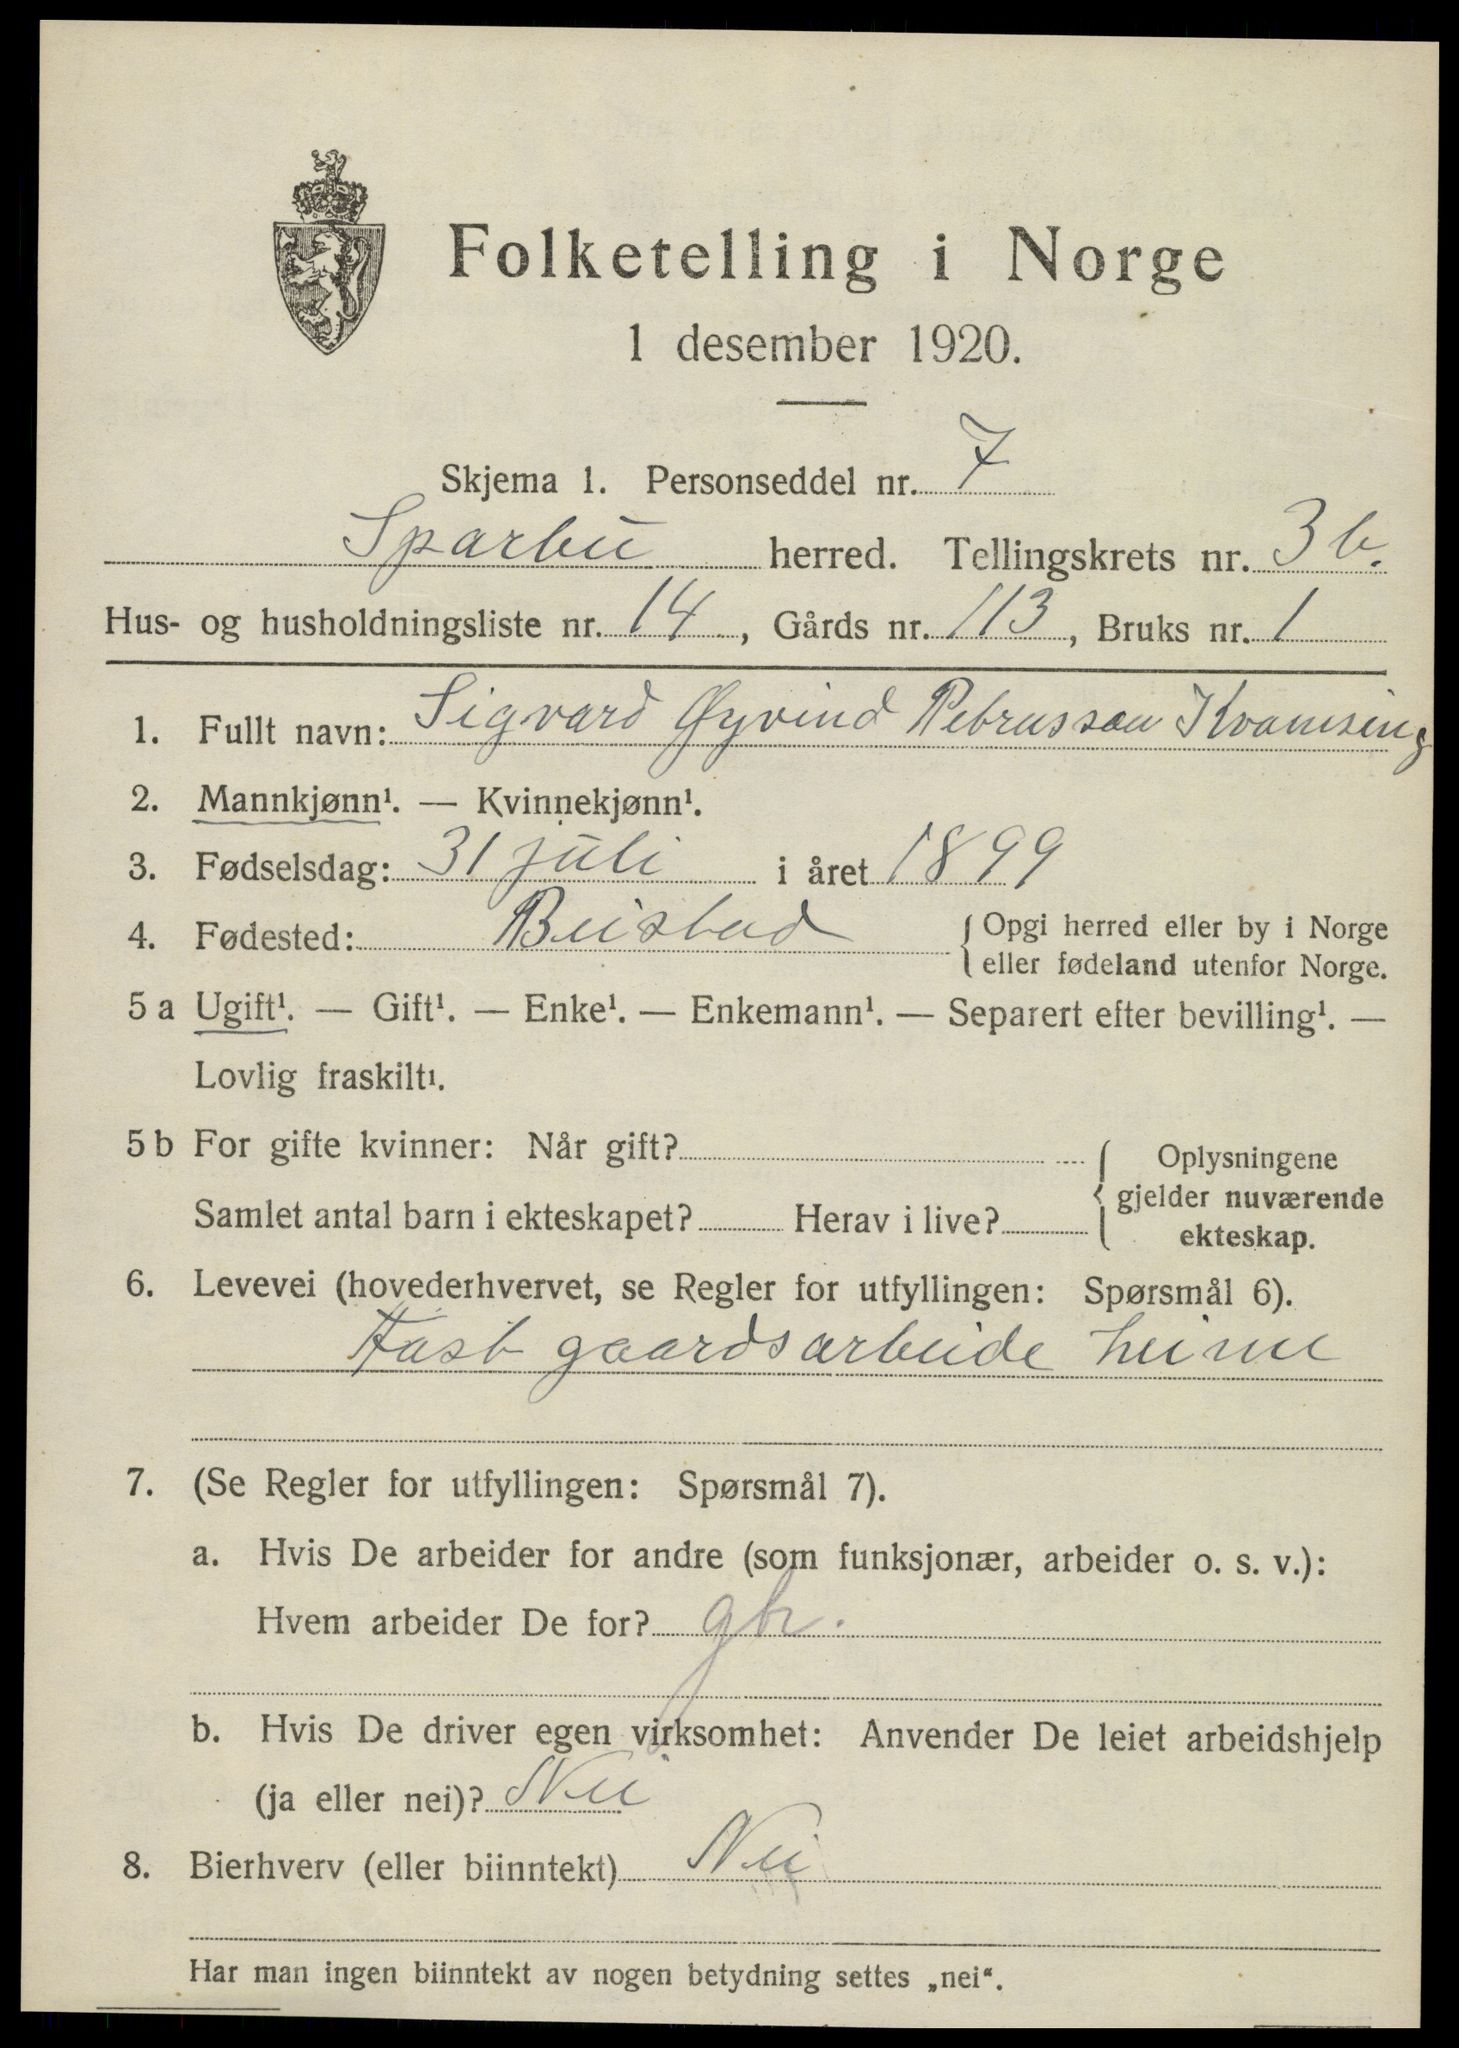 Folketelling i Norge
1 desember 1920.
Skjema 1. Personseddel nr. 7
Sparbu herred. Tellingskrets nr. 3b.
Hus- og husholdningsliste nr. 14, Gårds nr. 113, Bruks nr. 1
1. Fullt navn: Sigvard Øyvind Petrussen Kvamsing
2. Mannkjønn¹. — Kvinnekjønn¹.
3. Fødselsdag: 31 juli i året 1899
4. Fødested: Beistad { Opgi herred eller by i Norge
eller fødeland utenfor Norge.
5 a Ugift¹. — Gift¹. — Enke¹. — Enkemann¹. — Separert efter bevilling¹. —
Lovlig fraskilt¹.
5 b For gifte kvinner: Når gift? { Oplysningene
gjelder nuværende
Samlet antal barn i ekteskapet? Herav i live?
ekteskap.
6. Levevei (hovederhvervet, se Regler for utfyllingen: Spørsmål 6).
Fast gaardsarbeide heime
7. (Se Regler for utfyllingen: Spørsmål 7).
a. Hvis De arbeider for andre (som funksjonær, arbeider o. s. v.):
Hvem arbeider De for? gbr.
b. Hvis De driver egen virksomhet: Anvender De leiet arbeidshjelp
(ja eller nei)? Nei
8. Bierhverv (eller biinntekt) Nei
Har man ingen biinntekt av nogen betydning settes „nei“.